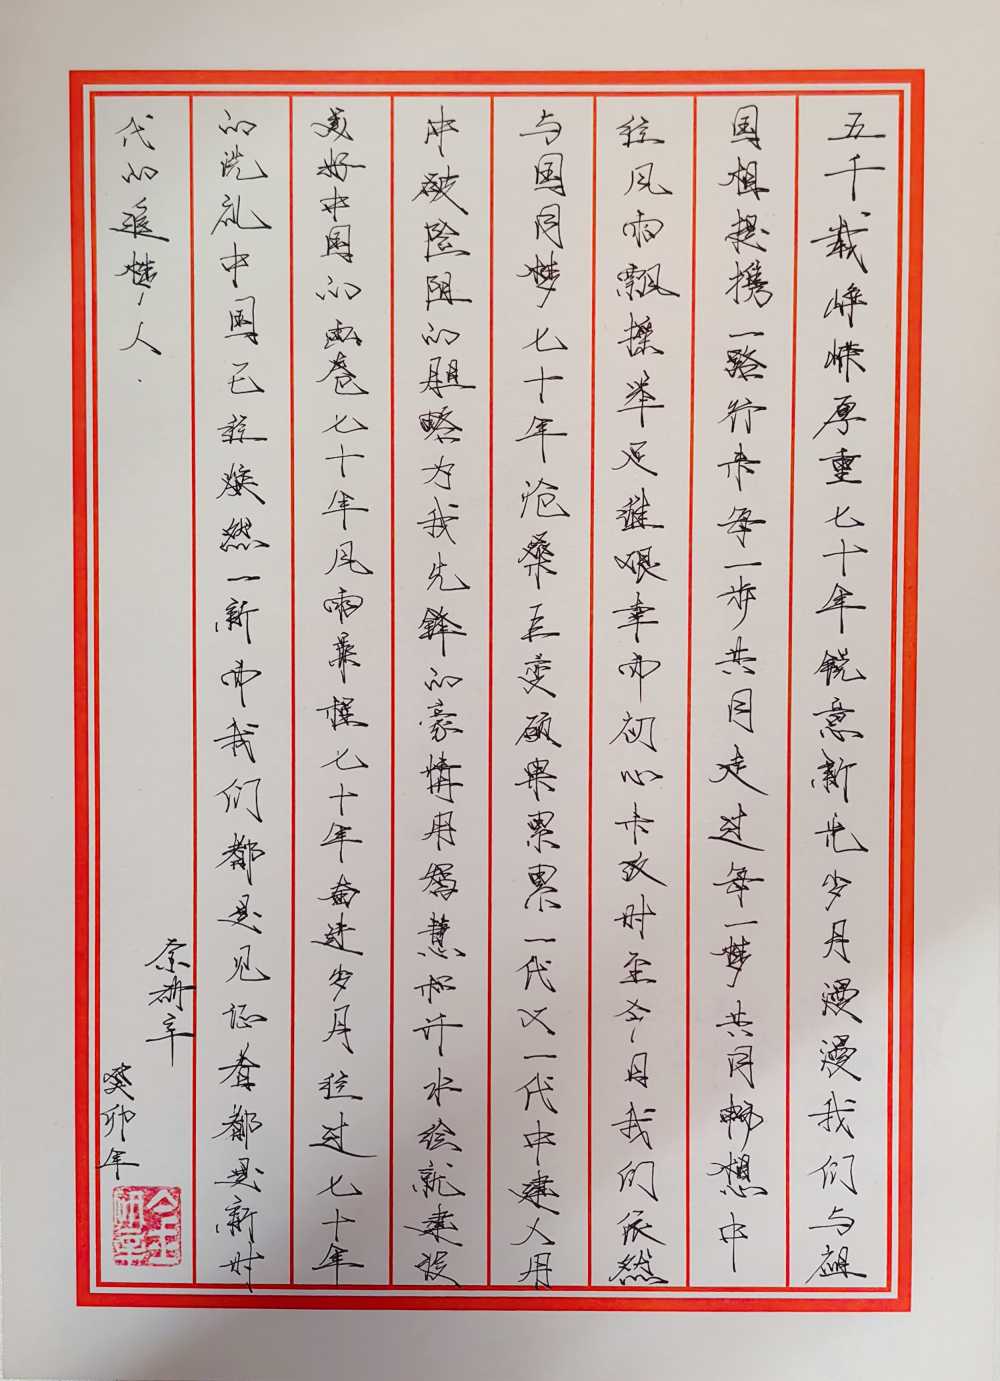 五千载峥嵘厚重七十年锐意新光岁月漫漫我们与祖
国相提携一路行来每一步共同走过每一梦共同畅想中
经风雨飘摇举足维艰幸而初心未改时至今日我们依然
与国同梦七十年沧桑巨变硕果累累一代又一代中建人用
冲破险阻的胆略为我先锋的豪情用智慧和汗水绘就建设
美好中国的画卷七十年风雨兼程七十年奋进岁月经过七十年
的洗礼中国已经焕然一新而我们都是见证者都是新时
代的追梦人
余研辛
癸卯年